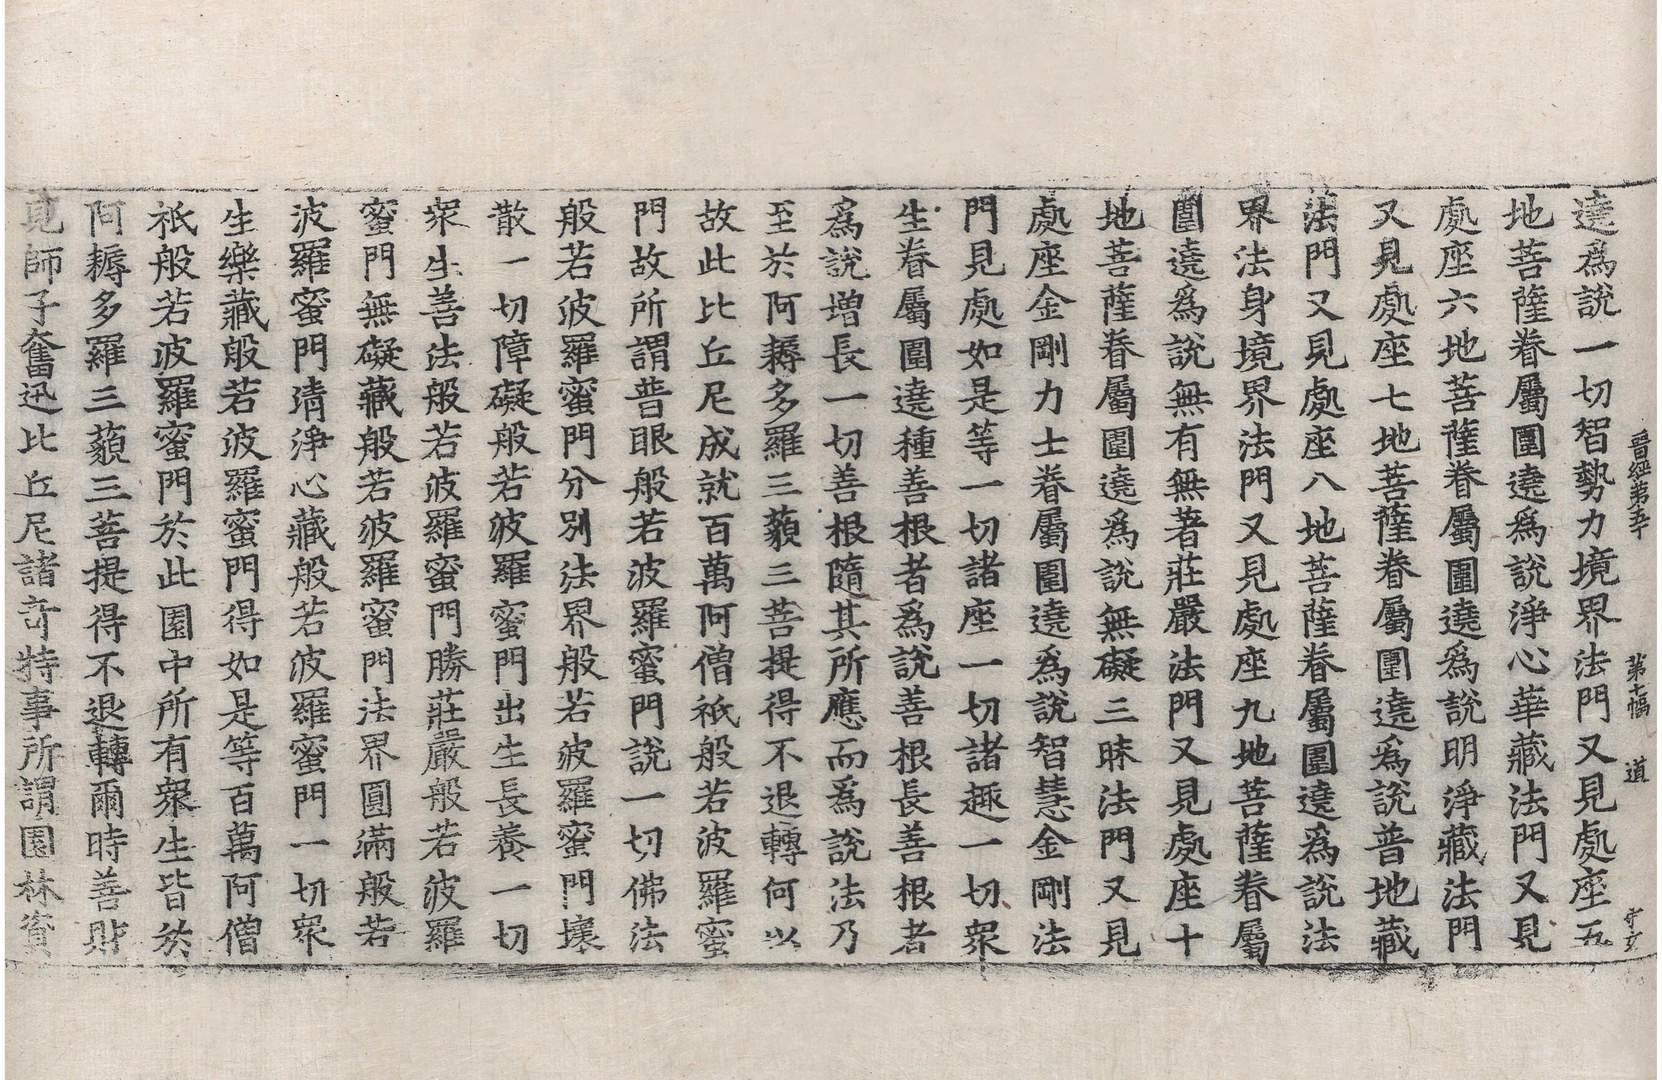 晉經第五十 第十幅 道
遶爲說一切智勢力境界法門又見處座五
地菩薩眷屬圍遶爲說淨心華藏法門又見
處座六地菩薩眷屬圍遶爲說明淨藏法門
又見處座七地菩薩眷屬圍遶爲說普地藏
法門又見處座八地菩薩眷屬圍遶爲說法
界法身境界法門又見處座九地菩薩眷屬
圍遶爲說無有無著莊嚴法門又見處座十
地菩薩眷屬圍遶爲說無礙三昧法門又見
處座金剛力士眷屬圍遶爲說智慧金剛法
門見處如是等一切諸座一切諸趣一切衆
生眷屬圍遶種善根者爲說善根長善根者
爲說增長一切善根隨其所應而爲說法乃
至於阿耨多羅三藐三菩提得不退轉何以
故此比丘尼成就百萬阿僧祇般若波羅蜜
門故所謂普眼般若波羅蜜門說一切佛法
般若波羅蜜門分別法界般若波羅蜜門壞
散一切障礙般若波羅蜜門出生長養一切
衆生善法般若波羅蜜門勝莊嚴般若波羅
蜜門無礙藏般若波羅蜜門法界圓滿般若
波羅蜜門清淨心藏般若波羅蜜門一切衆
生樂藏般若波羅蜜門得如是等百萬阿僧
祇般若波羅蜜門於此園中所有衆生皆於
阿耨多羅三藐三菩提得不退轉爾時善財
見師子奮迅比丘尼諸奇特事所謂園林資